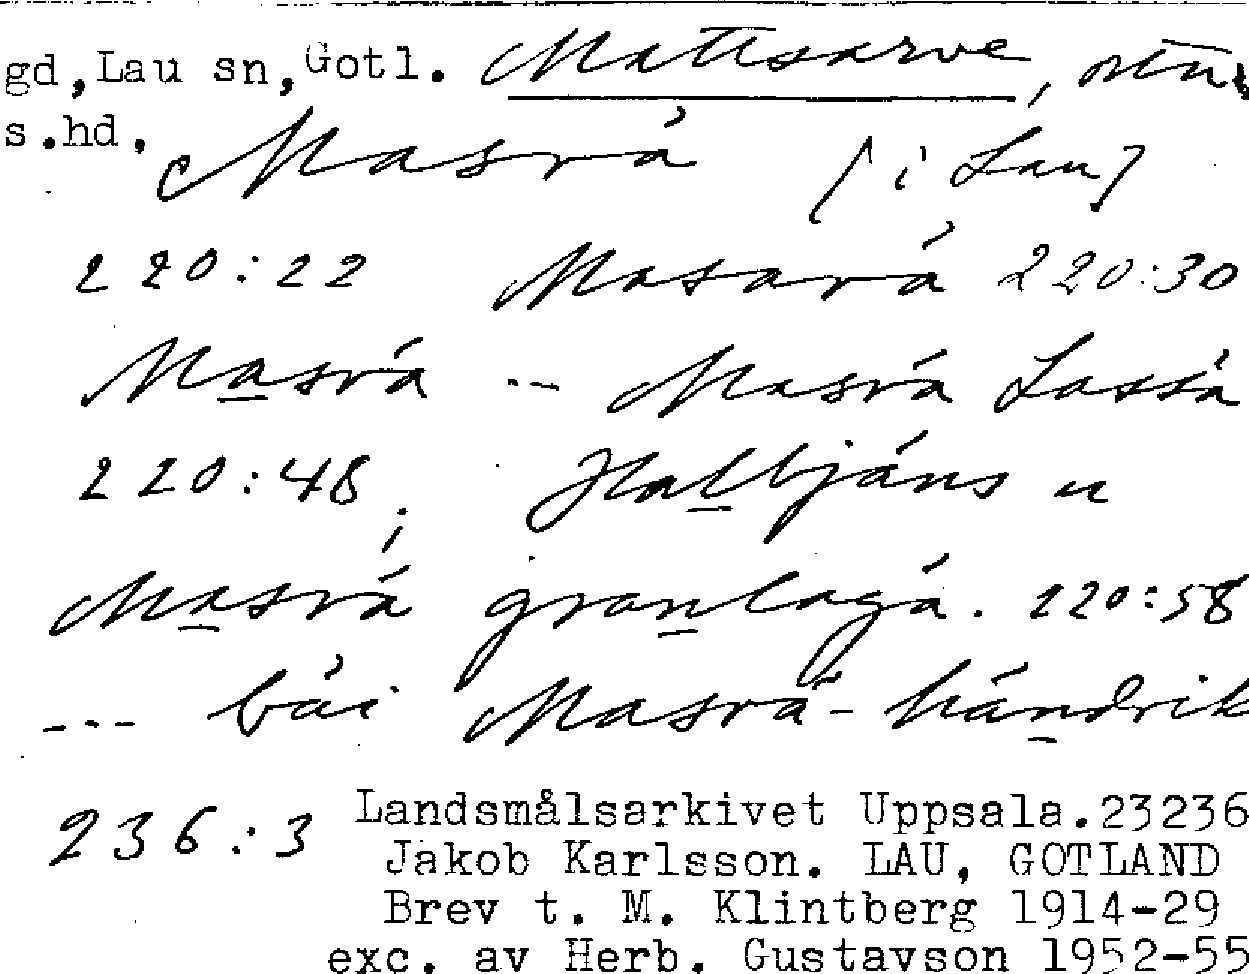 gd, Lau sn, Gotl. Mattsarve, ortn.
s.hd. Masrá [i Lau]
220:22 Masará 220:30
Masrá --- Masrá Lassá
220:48 Hallbjáns u
Masrá granlagá. 220:58
--- bái Masrá-hándrik
236:3 Landsmålsarkivet Uppsala.23236
Jakob Karlsson. LAU, GOTLAND
Brev t. M. Klintberg 1914-29
exc. av Herb. Gustavson 1952-55